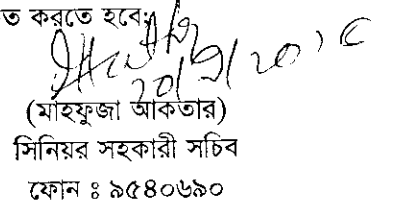 ত করতে হবে;
(মাহফুজা আকতার)
সিনিয়র সহকারী সচিব
ফোন ঃ ৯৫৪০৬৯০